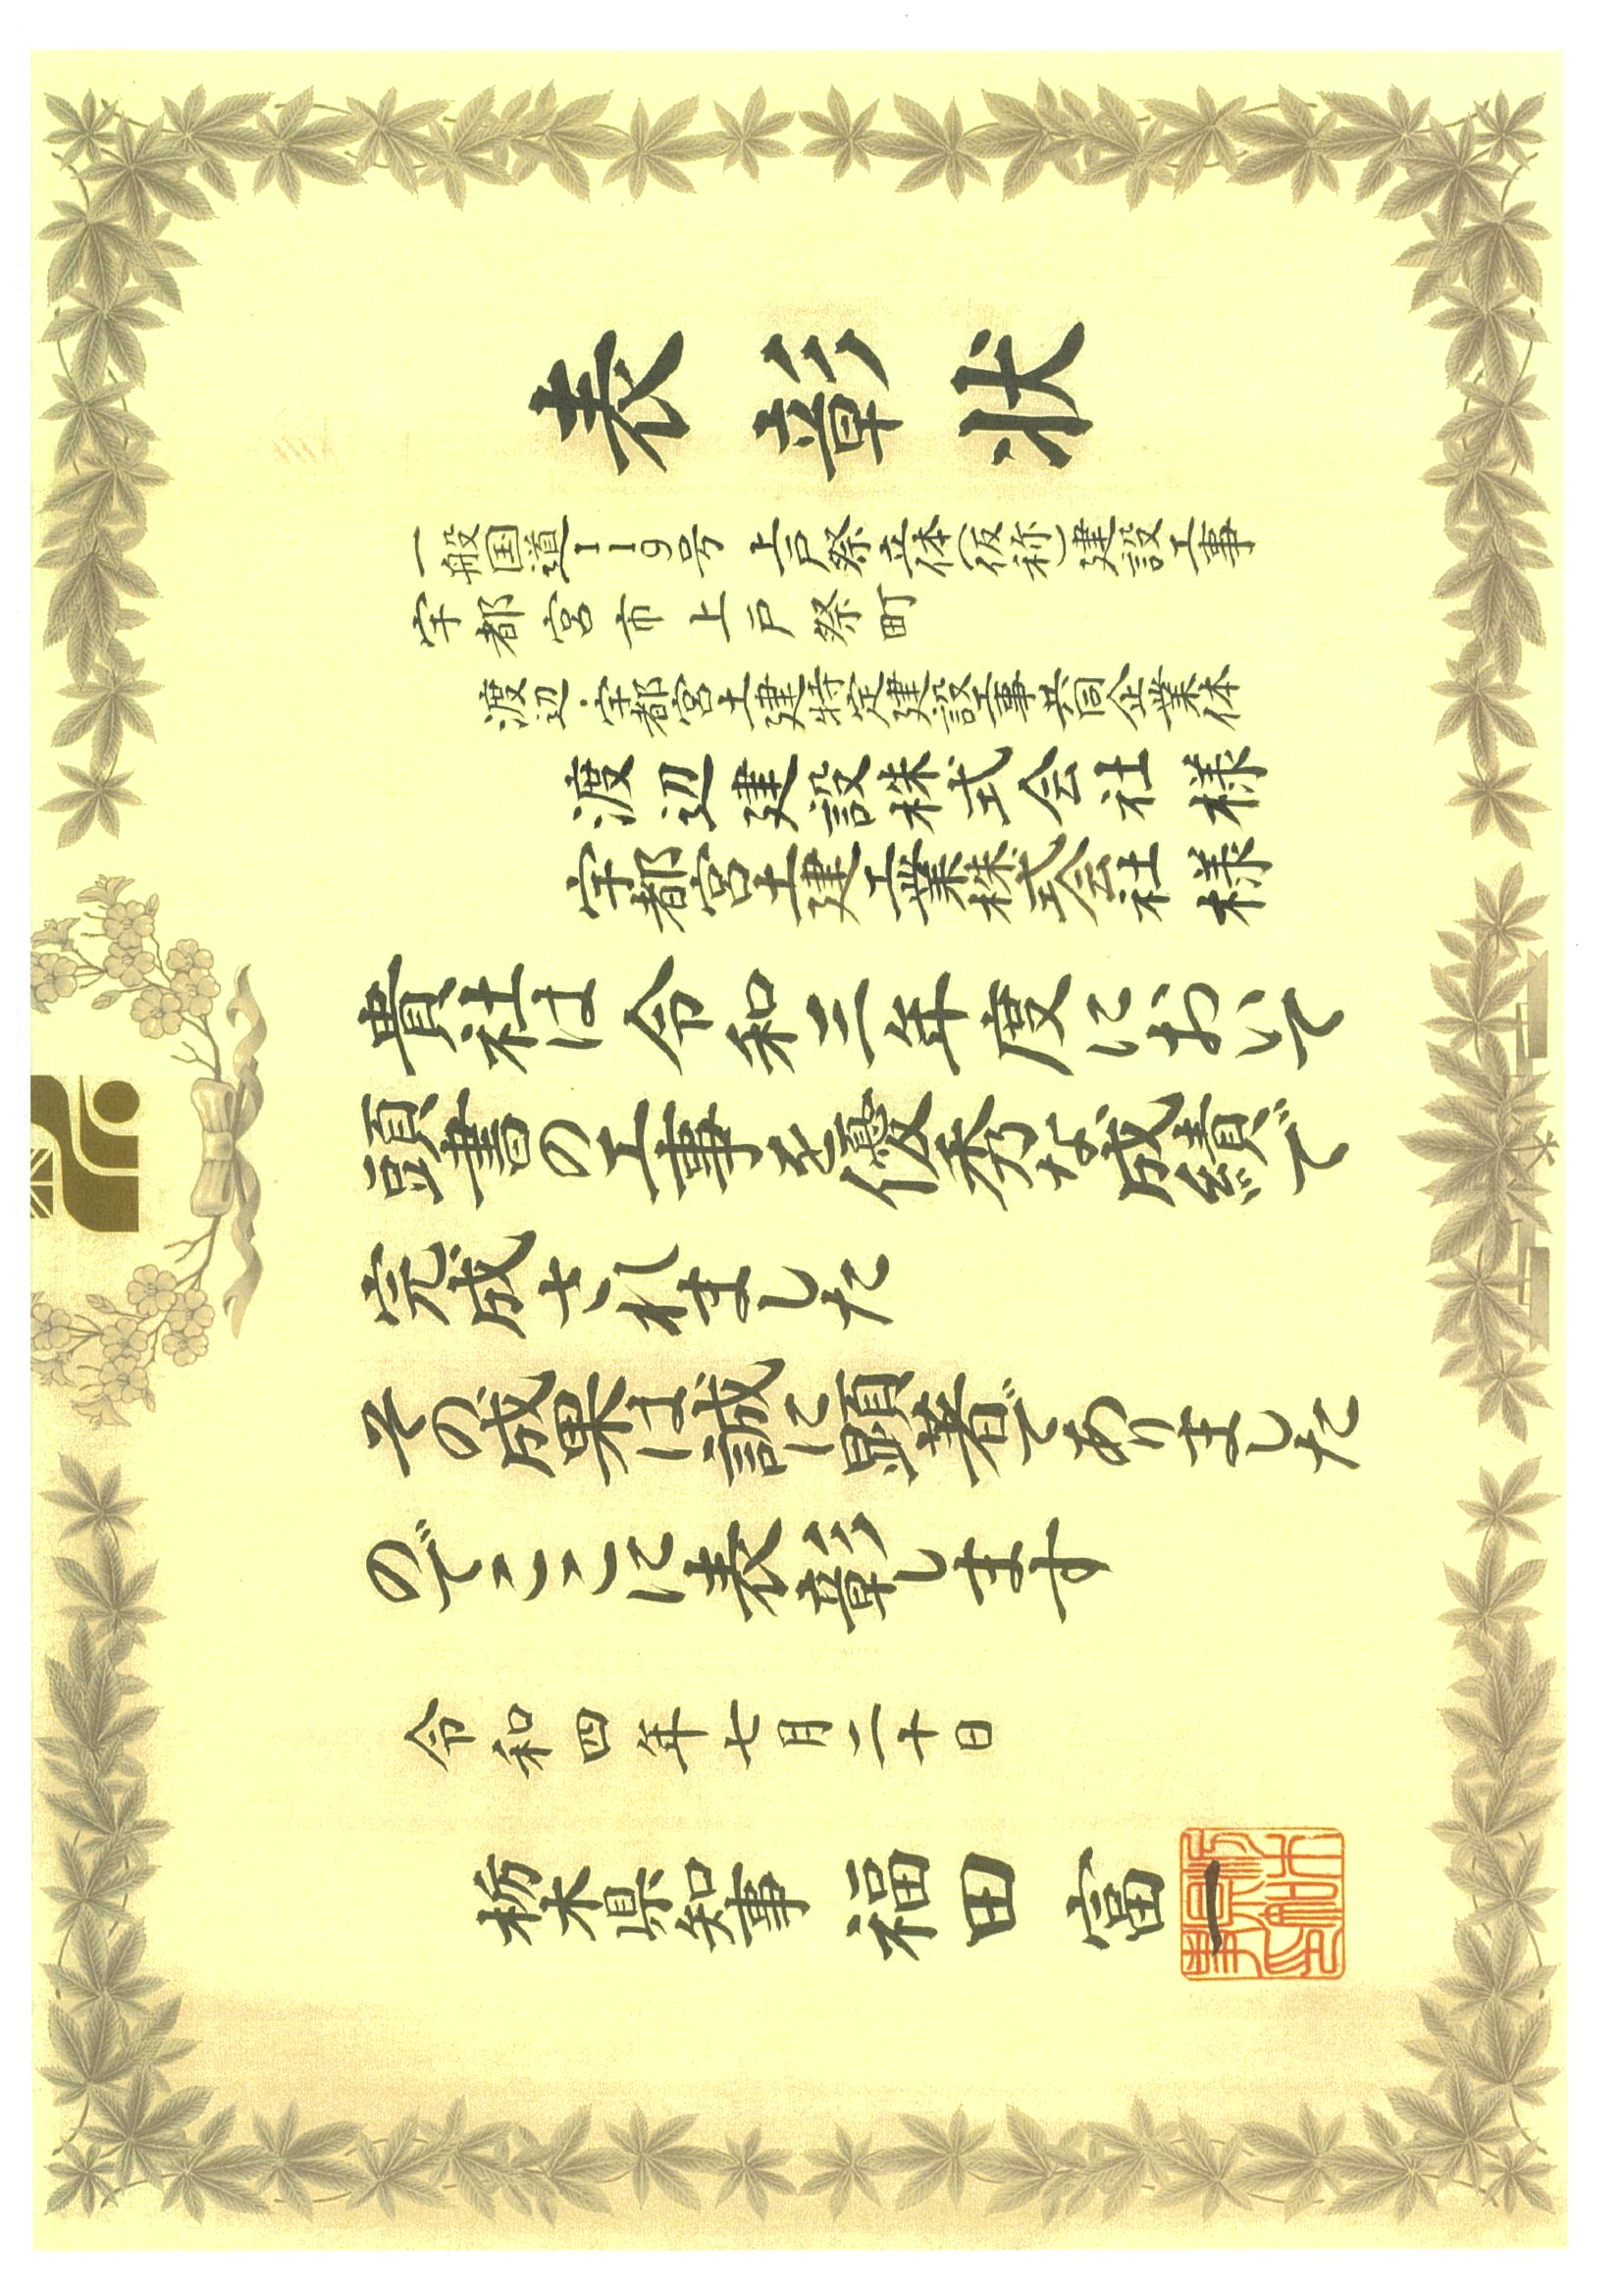 表彰状
一般国道119号 上戸祭立体(仮称)建設工事
宇都宮市上戸祭町
渡辺・宇都宮土建特定建設工事共同企業体
渡辺建設株式会社 様
宇都宮土建工業株式会社 様
貴社は令和三年度において
頭書の工事を優秀な成績で
完成されました
その成果は誠に顕著でありました
のでここに表彰します
令和四年七月二十日
栃木県知事 福田富一
栃木県知事之印